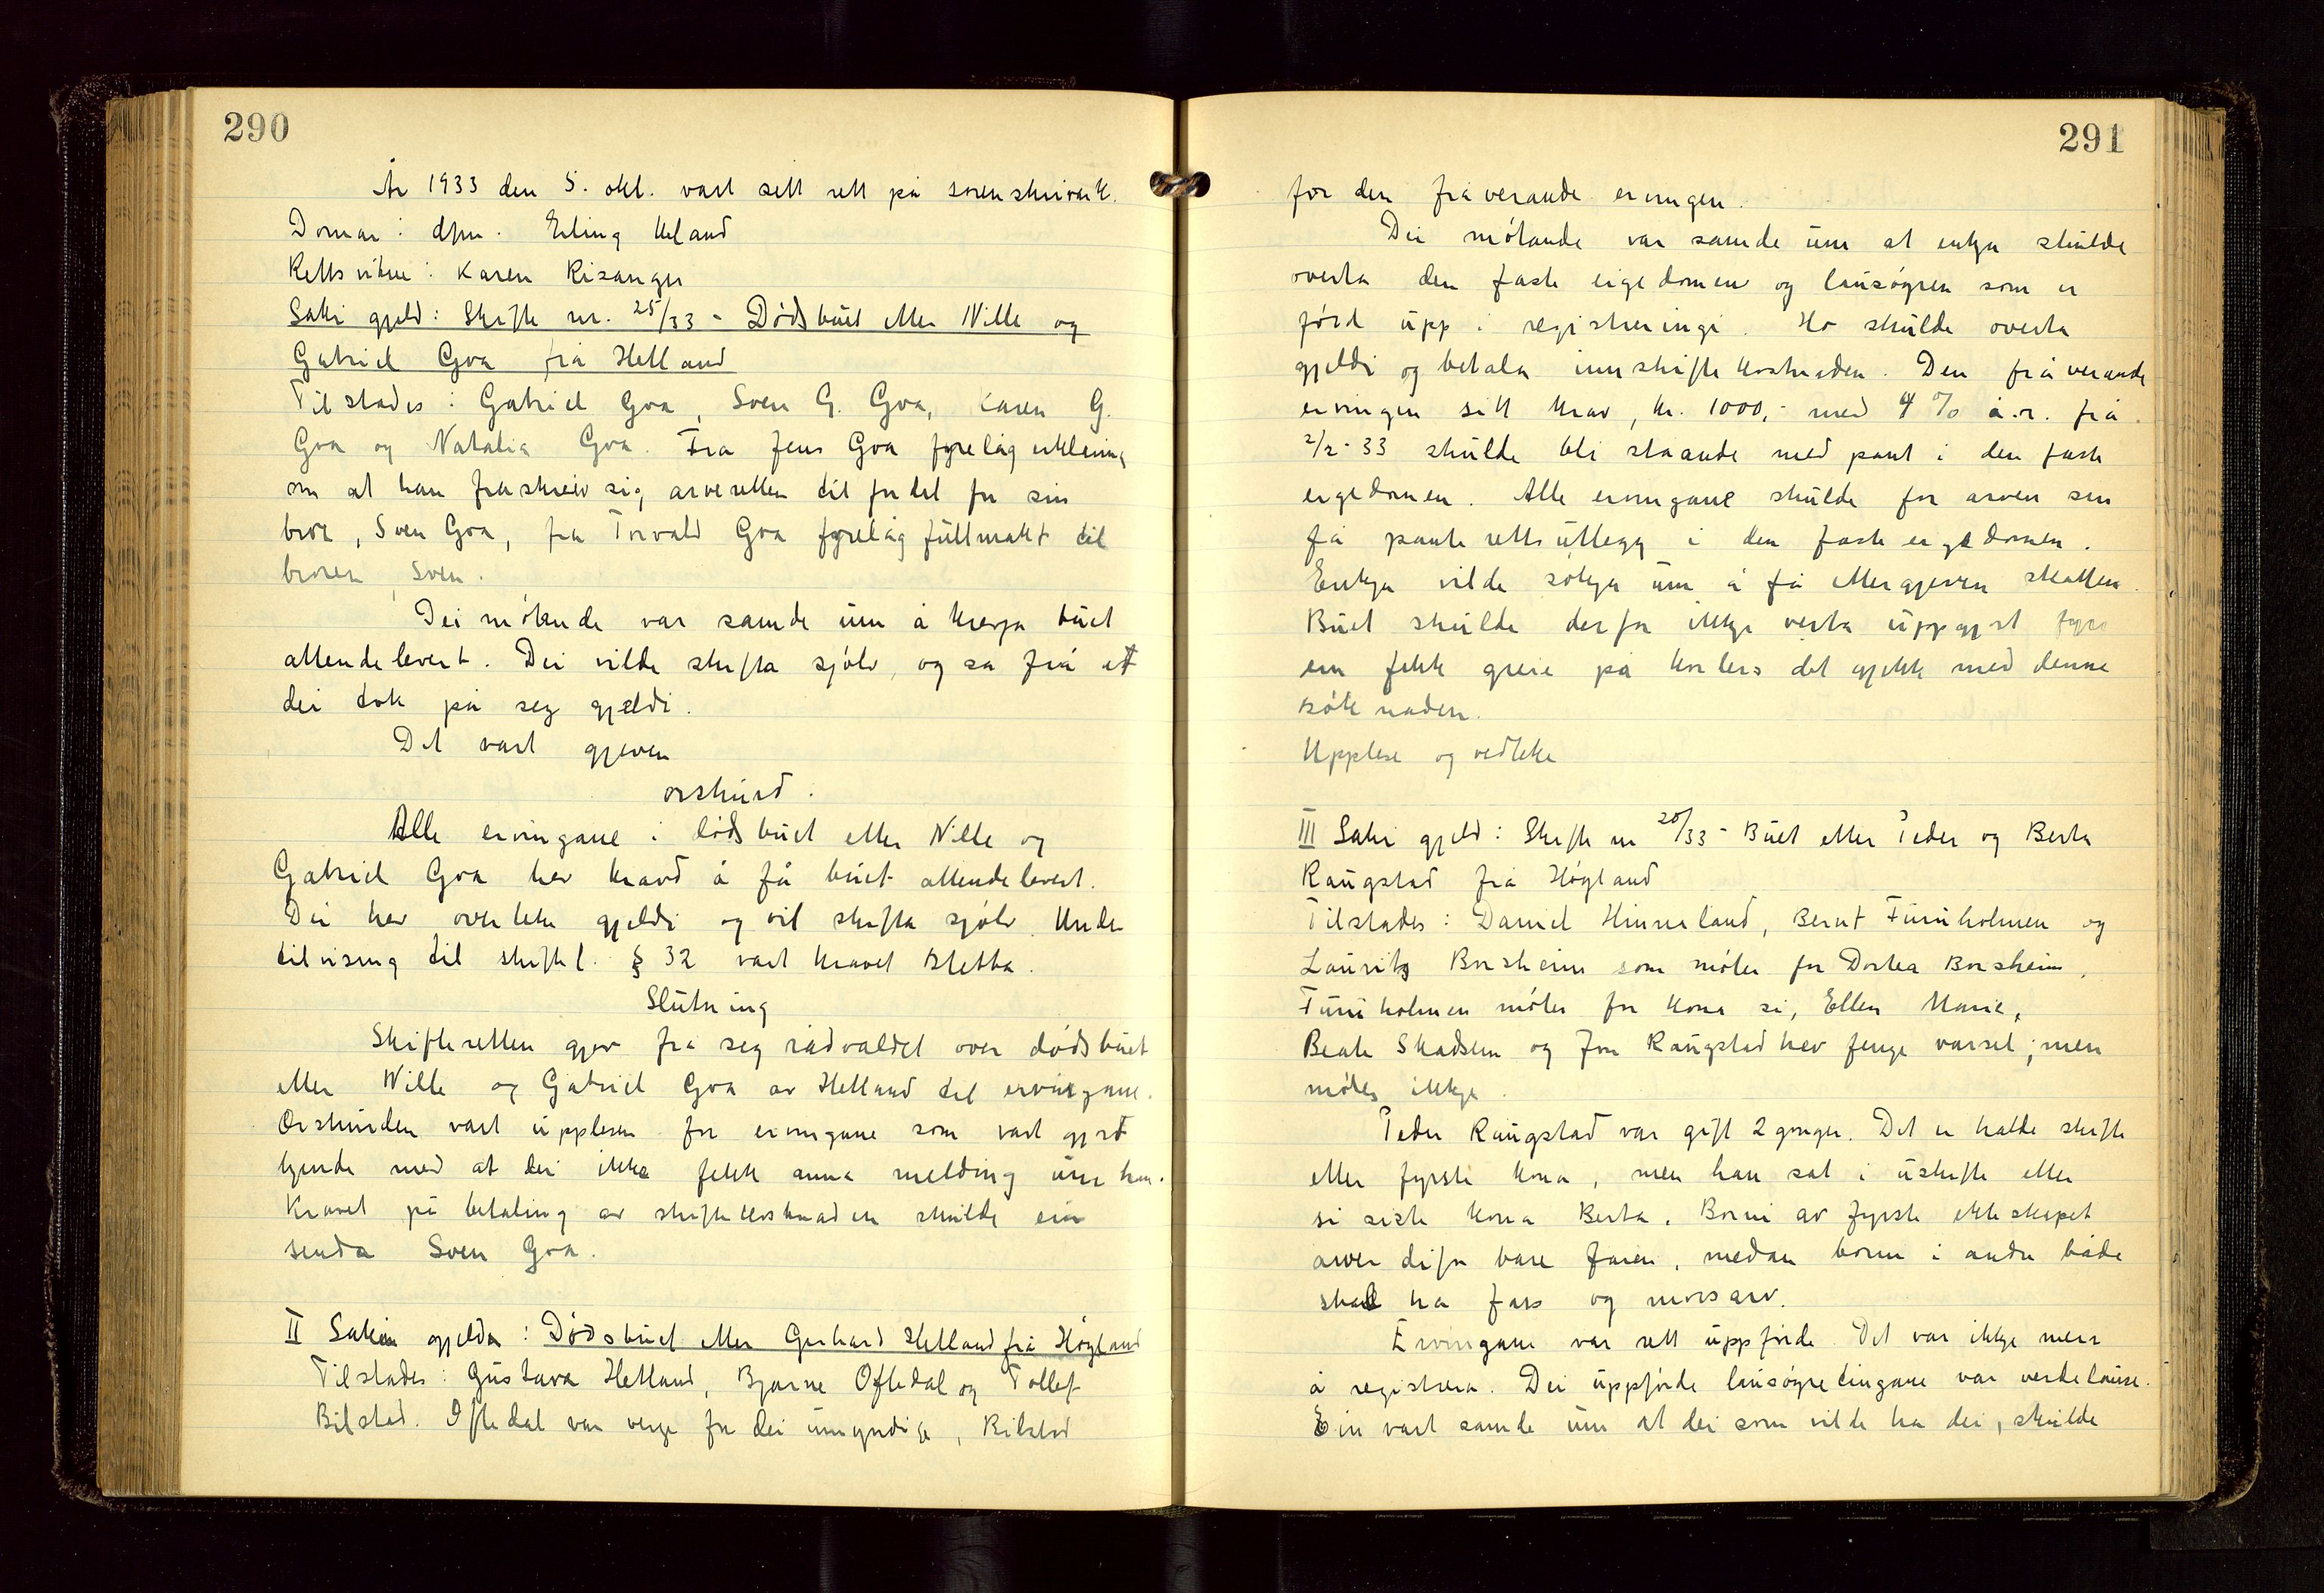 290
År 1933 den 5. okt. vart sett rett på sorenskrivark.
Domar: dfm. Erling Ueland
Rettsvitne: Karen Risanger
Saki gjeld: Skifte nr. 25/33 - Dødsbuet etter Nille og
Gabriel Goa frå Helland
Tilstades: Gabriel Goa, Sven G. Goa, Karen G.
Goa og Natalia Goa. Fra Jens Goa fyrelåg erklæring
om at han fraskreiv sig arveretten til fordel for sin
bror, Sven Goa, fra Torvald Goa fyrelåg fullmakt til
broren Sven.
Dei møtande var samde um å krevja buet
attendelevert. Dei vilde skifta sjølv, og sa frå at
dei tok på seg gjeldi.
Det vart gjeven
orskurd.
Alle ervingane i dødsbuet etter Nille og
Gabriel Goa hev kravd å få buet attendelevert.
Dei hev overteke gjeldi og vil skifta sjølv. Under
tilvising til skiftel. § 32 vart kravet stetta.
Slutning
Skifteretten gjev frå seg rådvaldet over dødsbuet
etter Nille og Gabriel Goa av Helland til ervingane.
Orskurden vart upplesen for ervingane som vart gjort
kjende med at dei ikke fekk anna melding um han.
Kravet på betaling av skiftekostnaden skulde ein
senda Sven Goa.
II Sakin gjelda: Dødsbuet etter Gerhard Helland frå Høgland
Tilstades: Gustava Helland, Bjarne Oftedal og Tollef
Bilstad. Oftedal var verge for dei umyndige, Bilstad
291
for den fråverande ervingen.
Dei møtande var samde um at enkja skulde
overta den faste eigedomen og lausøyren som er
førd upp i registreringi. Ho skulde overta
gjeldi og betala inn skiftekostnaden. Den fråverande
ervingen sitt krav, kr. 1000,- med 4 % å.r. frå
2/2-33 skulde bli staande med pant i den faste
eigedomen. Alle ervingane skulde for arven sin
få panterettsutlegg i den faste eigedomen.
Enkja vilde søkja um å få ettergjeven skatten.
Buet skulde derfor ikkje verta uppgjort fyrr
ein fekk greie på korleis det gjekk med denne
søknaden.
Upplese og vedteke
III Saki gjeld: Skifte nr 20/33 - Buet etter Peder og Berta
Raugstad frå Høgland
Tilstades: Daniel Hinnaland, Bernt Furuholmen og
Lauritz Borsheim som møter for Dortea Borsheim,
Furuholmen møter for kona si, Ellen Marie,
Beate Skadsem og Jon Raugstad hev fenge varsel; men
møter ikkje.
Peder Raugstad var gift 2 gonger. Det er halde skifte
etter fyrste kona, men han sat i uskifte etter
si siste kona Berta. Borni av fyrste ekteskapet
arver difor bare faren, medan borni i andre både
skal ha fars og morsarv.
Ervingane var rett uppførde. Det var ikkje meir
å registrera. Dei uppførde lausøyretingane var verdelause.
Ein vart samde um at dei som vilde ha dei, skulde